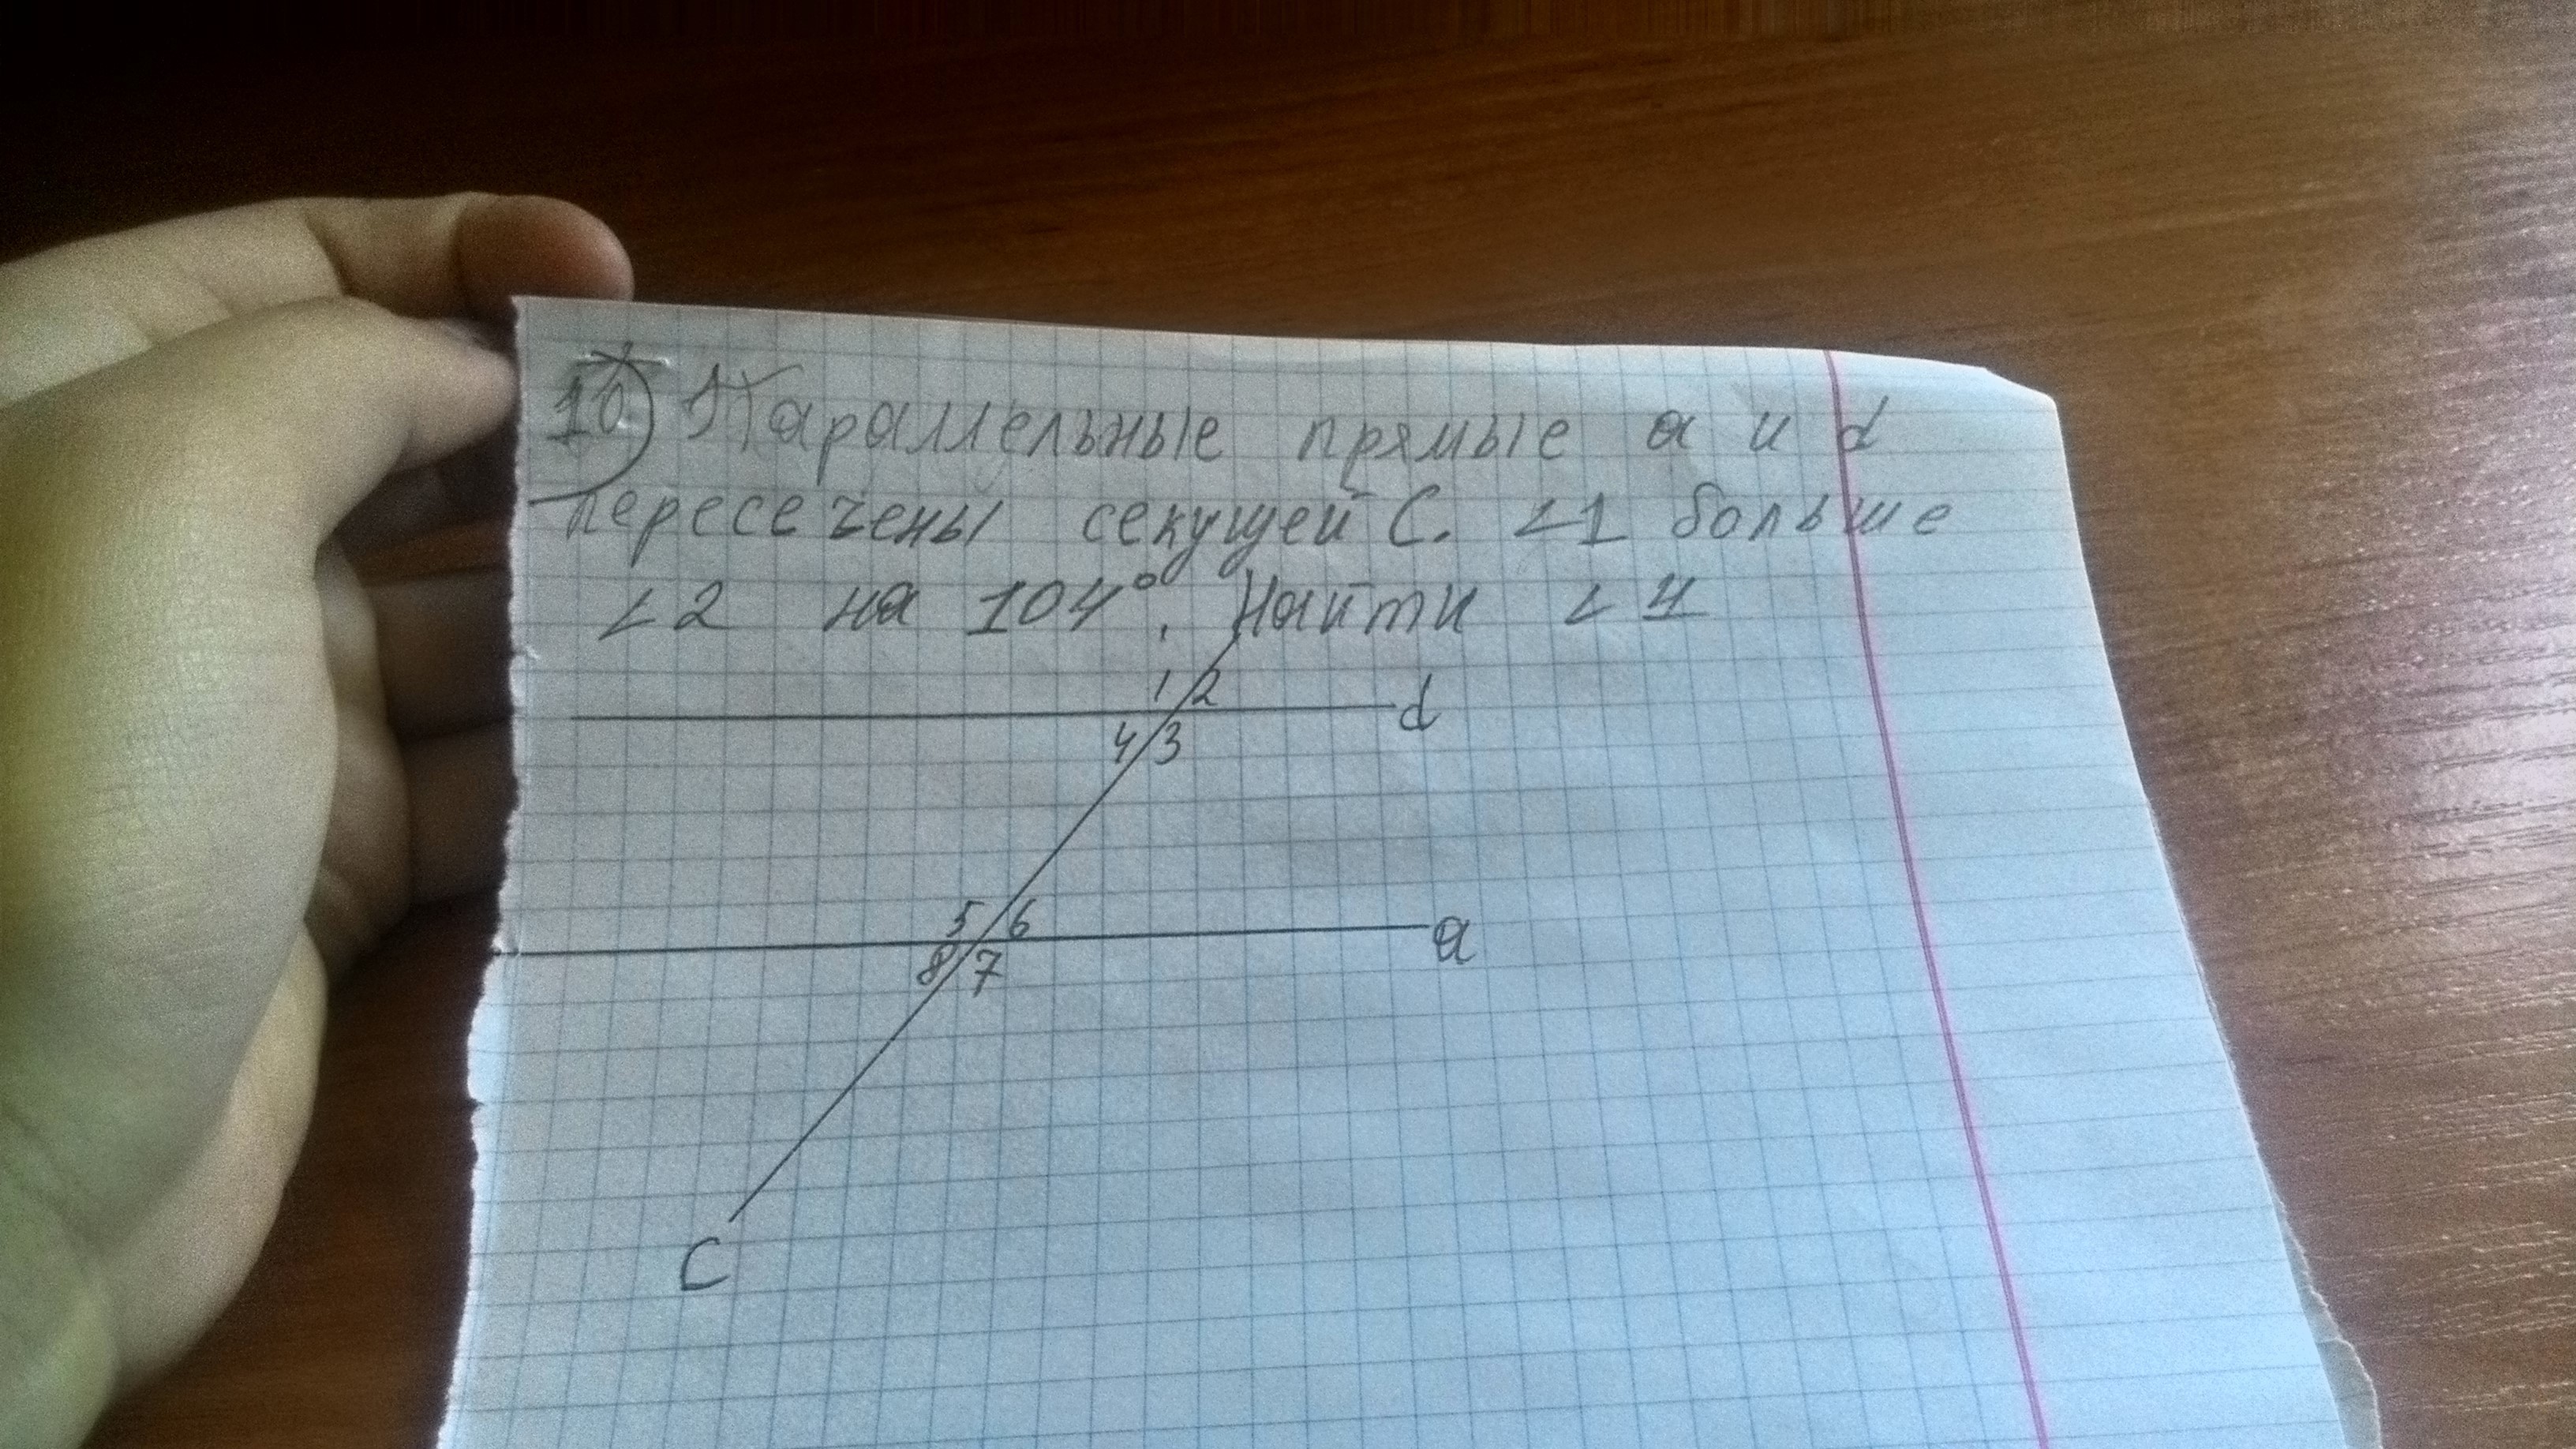 10) Параллельные прямые a и d
пересечены секущей C. ∠1 больше
∠2 на 104°. Найти ∠4
1 2
d
4 3
5 6
a
8 7
C